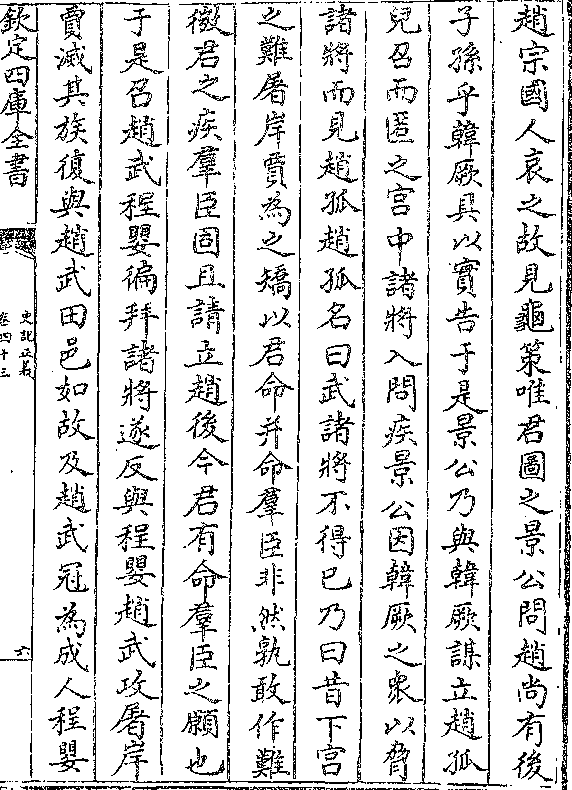 趙宗國人哀之故見龜策唯君圖之景公問趙尚有後
子孫乎韓厥具以實告于是景公乃與韓厥謀立趙孤
兒召而匿之宮中諸將入問疾景公因韓厥之衆以脅
諸將而見趙孤趙孤名曰武諸將不得已乃曰昔下宮
之難屠岸賈為之矯以君命并命羣臣非然孰敢作難
微君之疾羣臣固且請立趙後今君有命羣臣之願也
于是召趙武程嬰徧拜諸將遂反與程嬰趙武攻屠岸
賈滅其族復與趙武田邑如故及趙武冠為成人程嬰
欽定四庫全書
史記正義
卷四十三
六